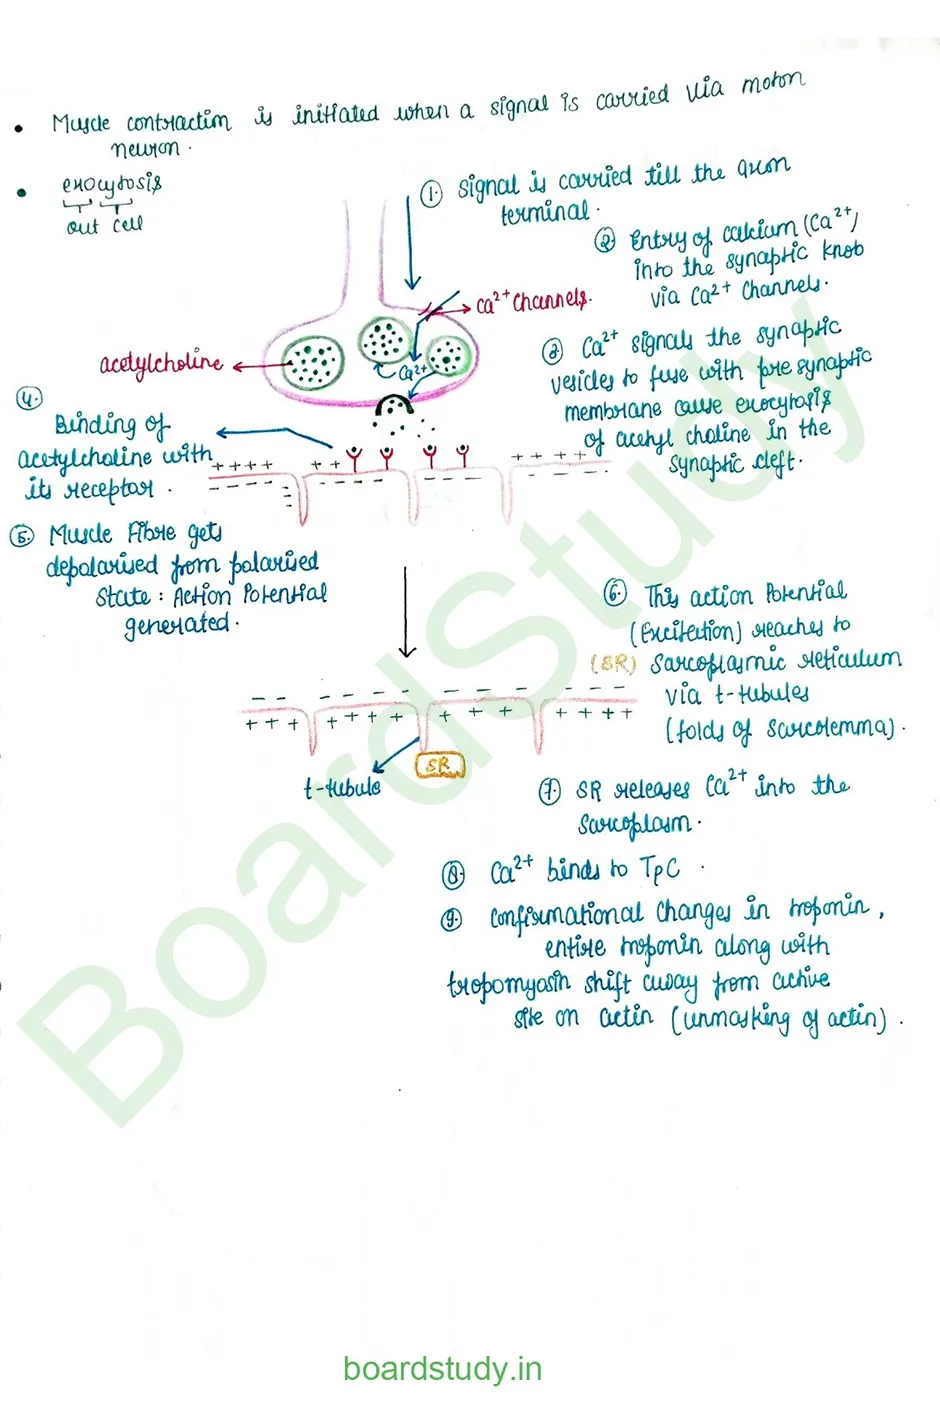 • Muscle contraction is initiated when a signal is carried via motor
neuron.
• exocytosis
out cell
① Signal is carried till the axon
terminal.
② Entry of calcium (Ca²⁺)
into the synaptic knob
via Ca²⁺ channels.
Ca²⁺ channels.
acetylcholine
Ca²⁺
③ Ca²⁺ signals the synaptic
vesicles to fuse with pre synaptic
membrane cause exocytosis
of acetyl choline in the
synaptic cleft.
④
Binding of
acetylcholine with
its receptor.
++++ ++ ++++
---- ---- ----
⑤ Muscle Fibre gets
depolarised from polarised
State : Action Potential
generated.
⑥ This action Potential
(Excitection) reaches to
(SR) Sarcoplasmic reticulum
via t-tubules
(folds of sarcolemma).
-- ---- ---- ----
+++ ++++ + + + ++++
SR
t-tubule
⑦ SR releases Ca²⁺ into the
sarcoplasm.
⑧ Ca²⁺ binds to TpC.
⑨ Confirmational changes in troponin,
entire troponin along with
tropomyosin shift away from active
site on actin (unmasking of actin).
BoardStudy
boardstudy.in